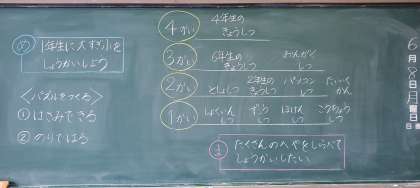 め
1年生に大すぎ小を
しょうかいしよう
〈パズルをつくる〉
①はさみできる
②のりではる
4かい
4年生の
きょうしつ
3かい
6年生の
きょうしつ
おんがく
しつ
2かい
としょしつ
2年生の
きょうしつ
パソコン
しつ
たいく
かん
1かい
しょくいん
しつ
ほけん
しつ
こうちょう
しつ
ま
たくさんのへやをしらべて
しょうかいしたい
6
月
8
日
月
曜
日